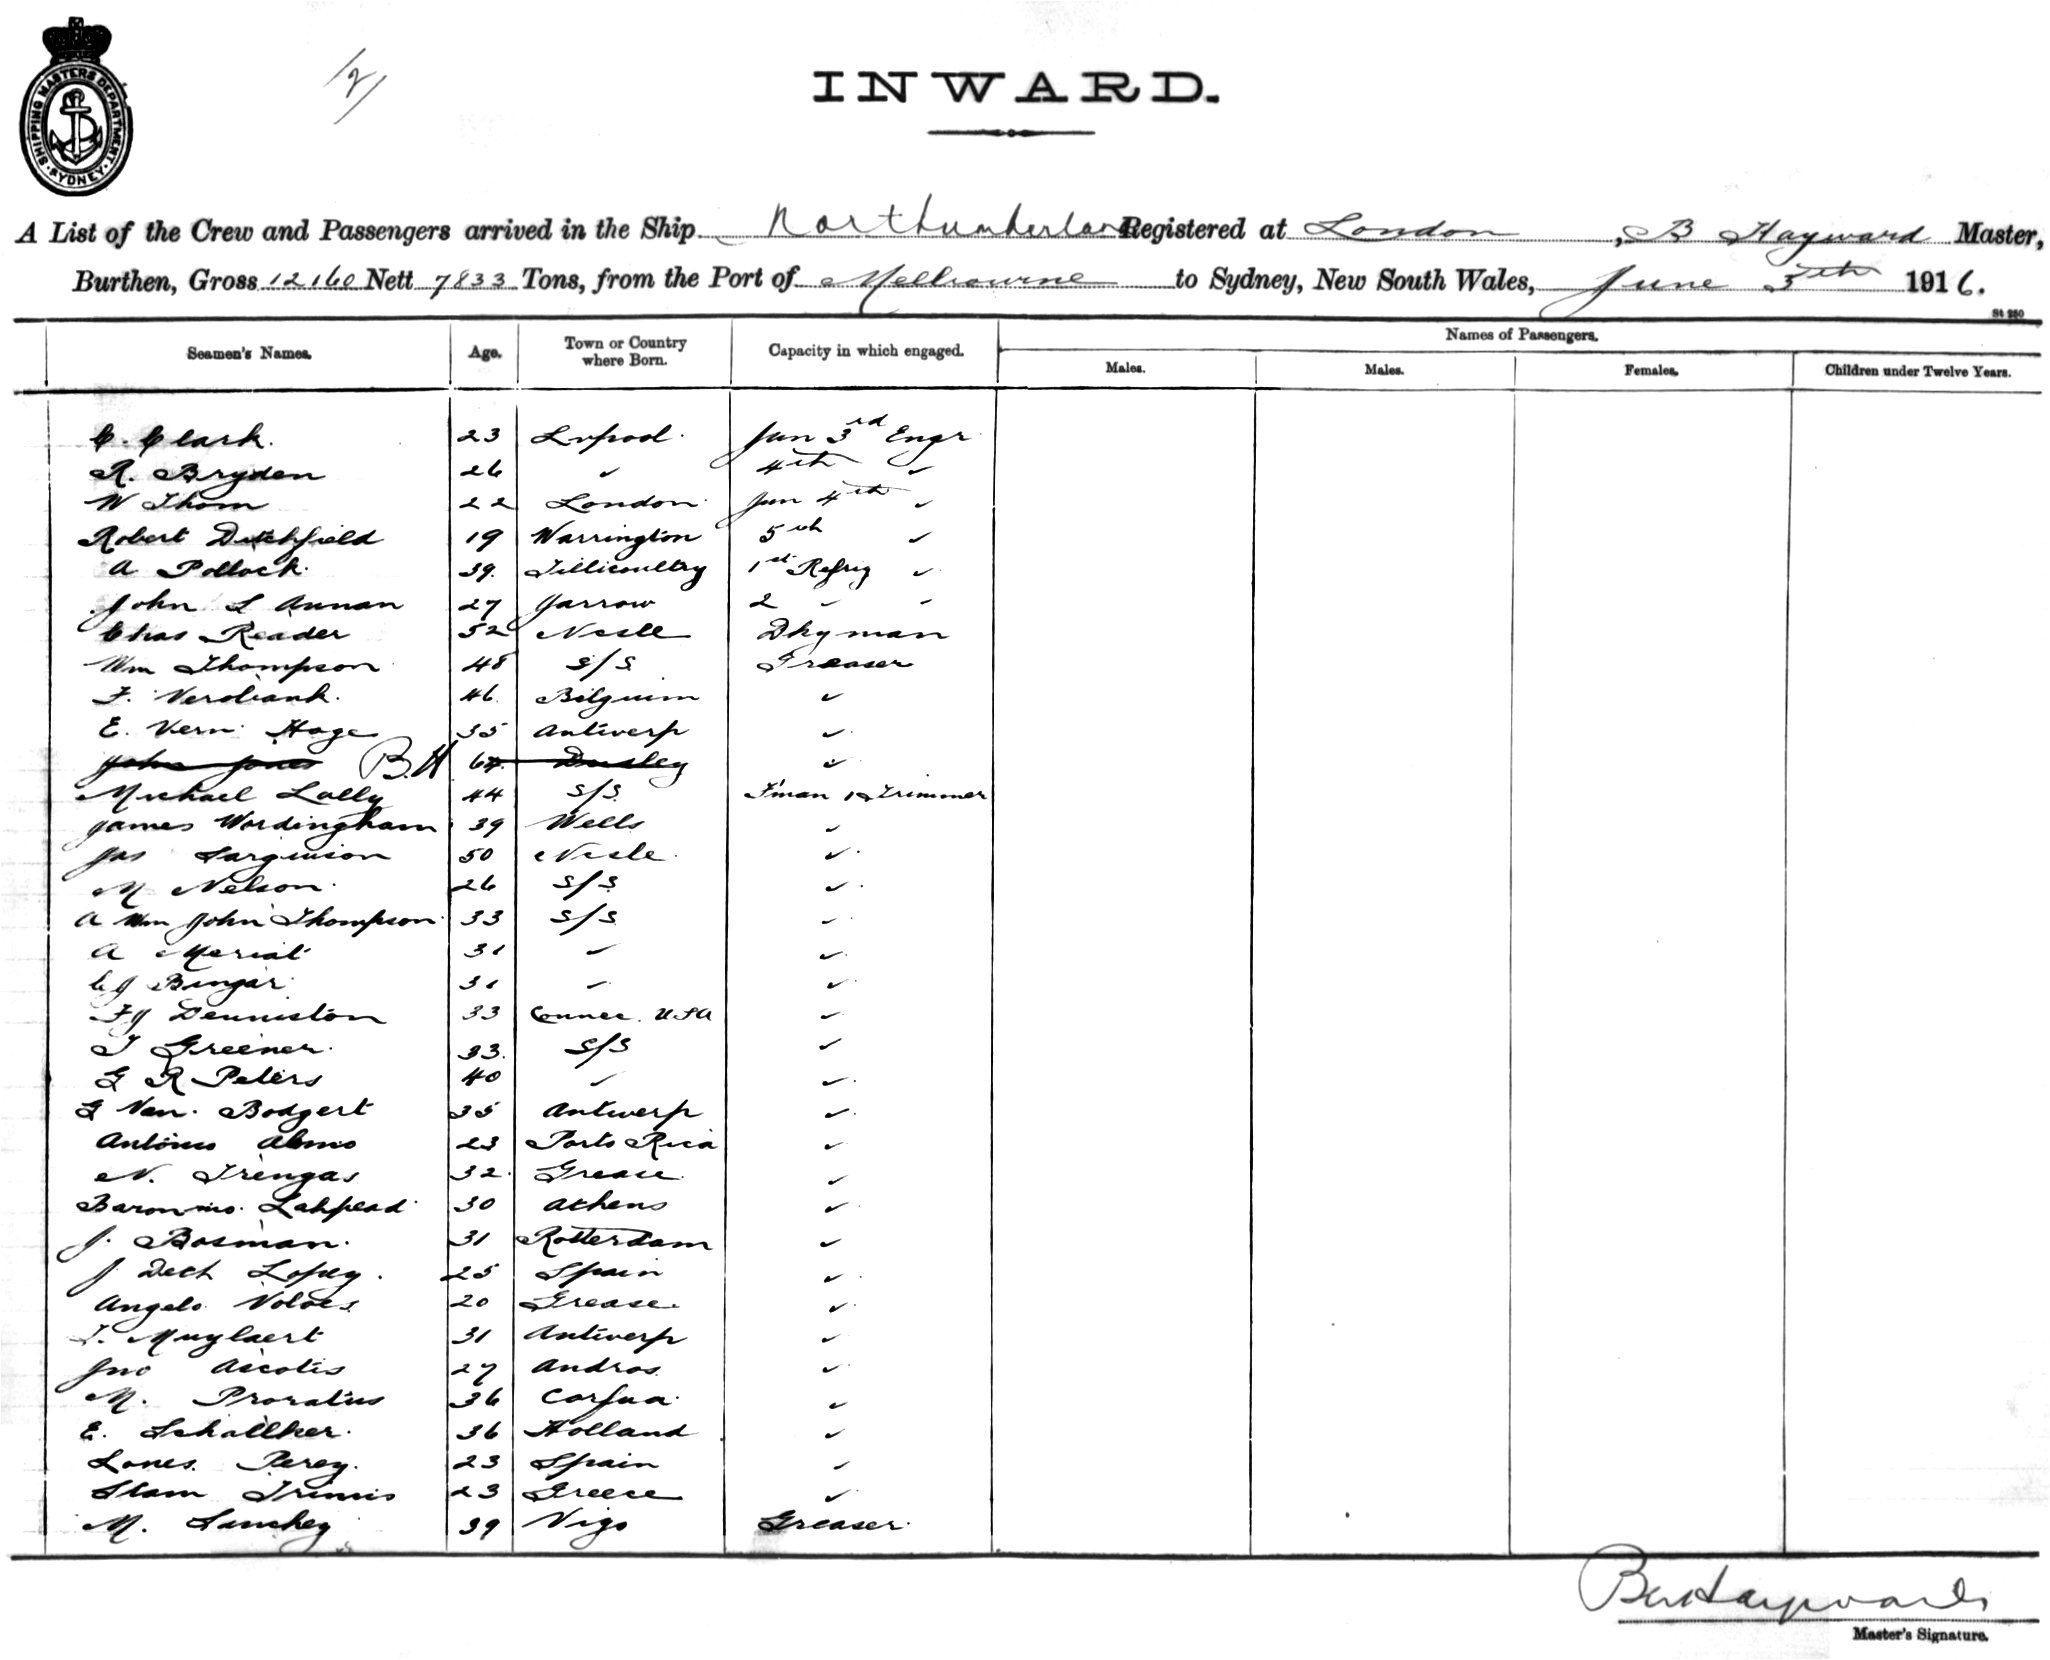 SHIPPING MASTERS DEPARTMENT · SYDNEY ·
/2/
INWARD.
A List of the Crew and Passengers arrived in the Ship Northumberland Registered at London, B Hayward Master,
Burthen, Gross 12160 Nett 7833 Tons, from the Port of Melbourne to Sydney, New South Wales, June 5th 1916.
St 250
Seamen's Names. Age. Town or Country where Born. Capacity in which engaged. Names of Passengers.
Males. Males. Females. Children under Twelve Years.
C. Clark. 23 L'vpool. Jun 3rd Engr
R. Bryden 26 " 4th "
W Thom 22 London Jun 4th "
Robert Ditchfield 19 Warrington 5th "
A Pollock. 39. Tillicoultry 1st Refrig "
John L Annan 27 Jarrow 2 " "
Chas Reader 52 Ncsle Dkyman
Wm Thompson 48 S/S Greaser
F. Verobank. 46 Bilguim "
E. Vern Hage 35 Antwerp "
John Jones B.H 64 Dursley "
Michael Lally 44 S/S F'man & Trimmer
James Wordingham 39 Wells "
Jas Sarginson 50 Ncsle. "
M Nelson. 26 S/S "
A Wm John Thompson 33 S/S "
A Meriat 31 " "
CJ Bingar 31 " "
FJ Denniston 33 Connec. USA "
T Greener. 33. S/S "
G R Peters 40 " "
G Van. Bodgert 35 Antwerp "
Antonio Almo 23 Porto Rica "
N. Trengas 32. Grease "
Lahpead 30 Athens "
J. Bosman. 31 Rotterdam "
J Dech Lopez. 25 Spain "
Angelo Voloes 20 Grease. "
Muylaert 31 Antwerp "
Jno Ascotis 27 Andros "
M. Proratius 36 Corfua. "
E. Schallker. 36 Holland "
Lones. Perez. 23 Spain "
Stam Trimis 23 Greece "
M. Sanchez 39 Vigo Greaser.
Ben Hayward
Master's Signature.